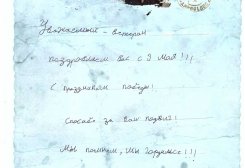 Уважаемый - ветеран
поздравляем Вас с 9 Мая!!!
С Праздником победы!
Спасибо за Ваш подвиг!
Мы помним, Мы гордимся!!!